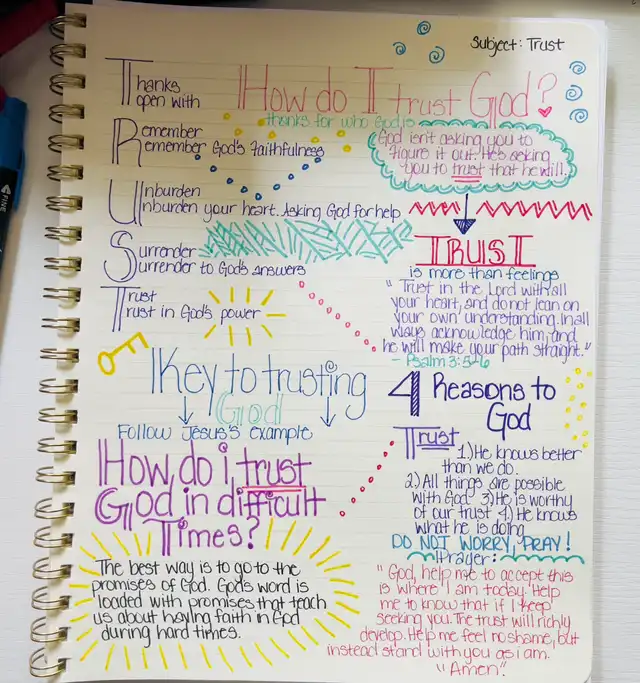 Subject: Trust
How do I trust God?
Thanks
open with
thanks for who God is
Remember
Remember God's Faithfulness
God isn't asking you to
figure it out. He's asking
you to trust that he will.
Unburden
Unburden your heart. Asking God for help
Surrender
Surrender to God's answers
Trust
Trust in God's power
TRUST
is more than feelings
"Trust in the Lord with all
your heart, and do not lean on
your own understanding. In all
ways acknowledge him, and
he will make your path straight."
- Psalm 3:5-6
Key to trusting
God
Follow Jesus's example
How do i trust
God in difficult
Times?
The best way is to go to the
promises of God. God's word is
loaded with promises that teach
us about having faith in God
during hard times.
4 Reasons to
God
Trust
1) He knows better
than we do.
2) All things are possible
with God 3) He is worthy
of our trust 4) He knows
what he is doing
DO NOT WORRY, PRAY!
Prayer:
"God, help me to accept this
is where I am today. Help
me to know that if I keep
seeking you. The trust will richly
develop. Help me feel no shame, but
instead stand with you as i am.
"Amen."
FINE